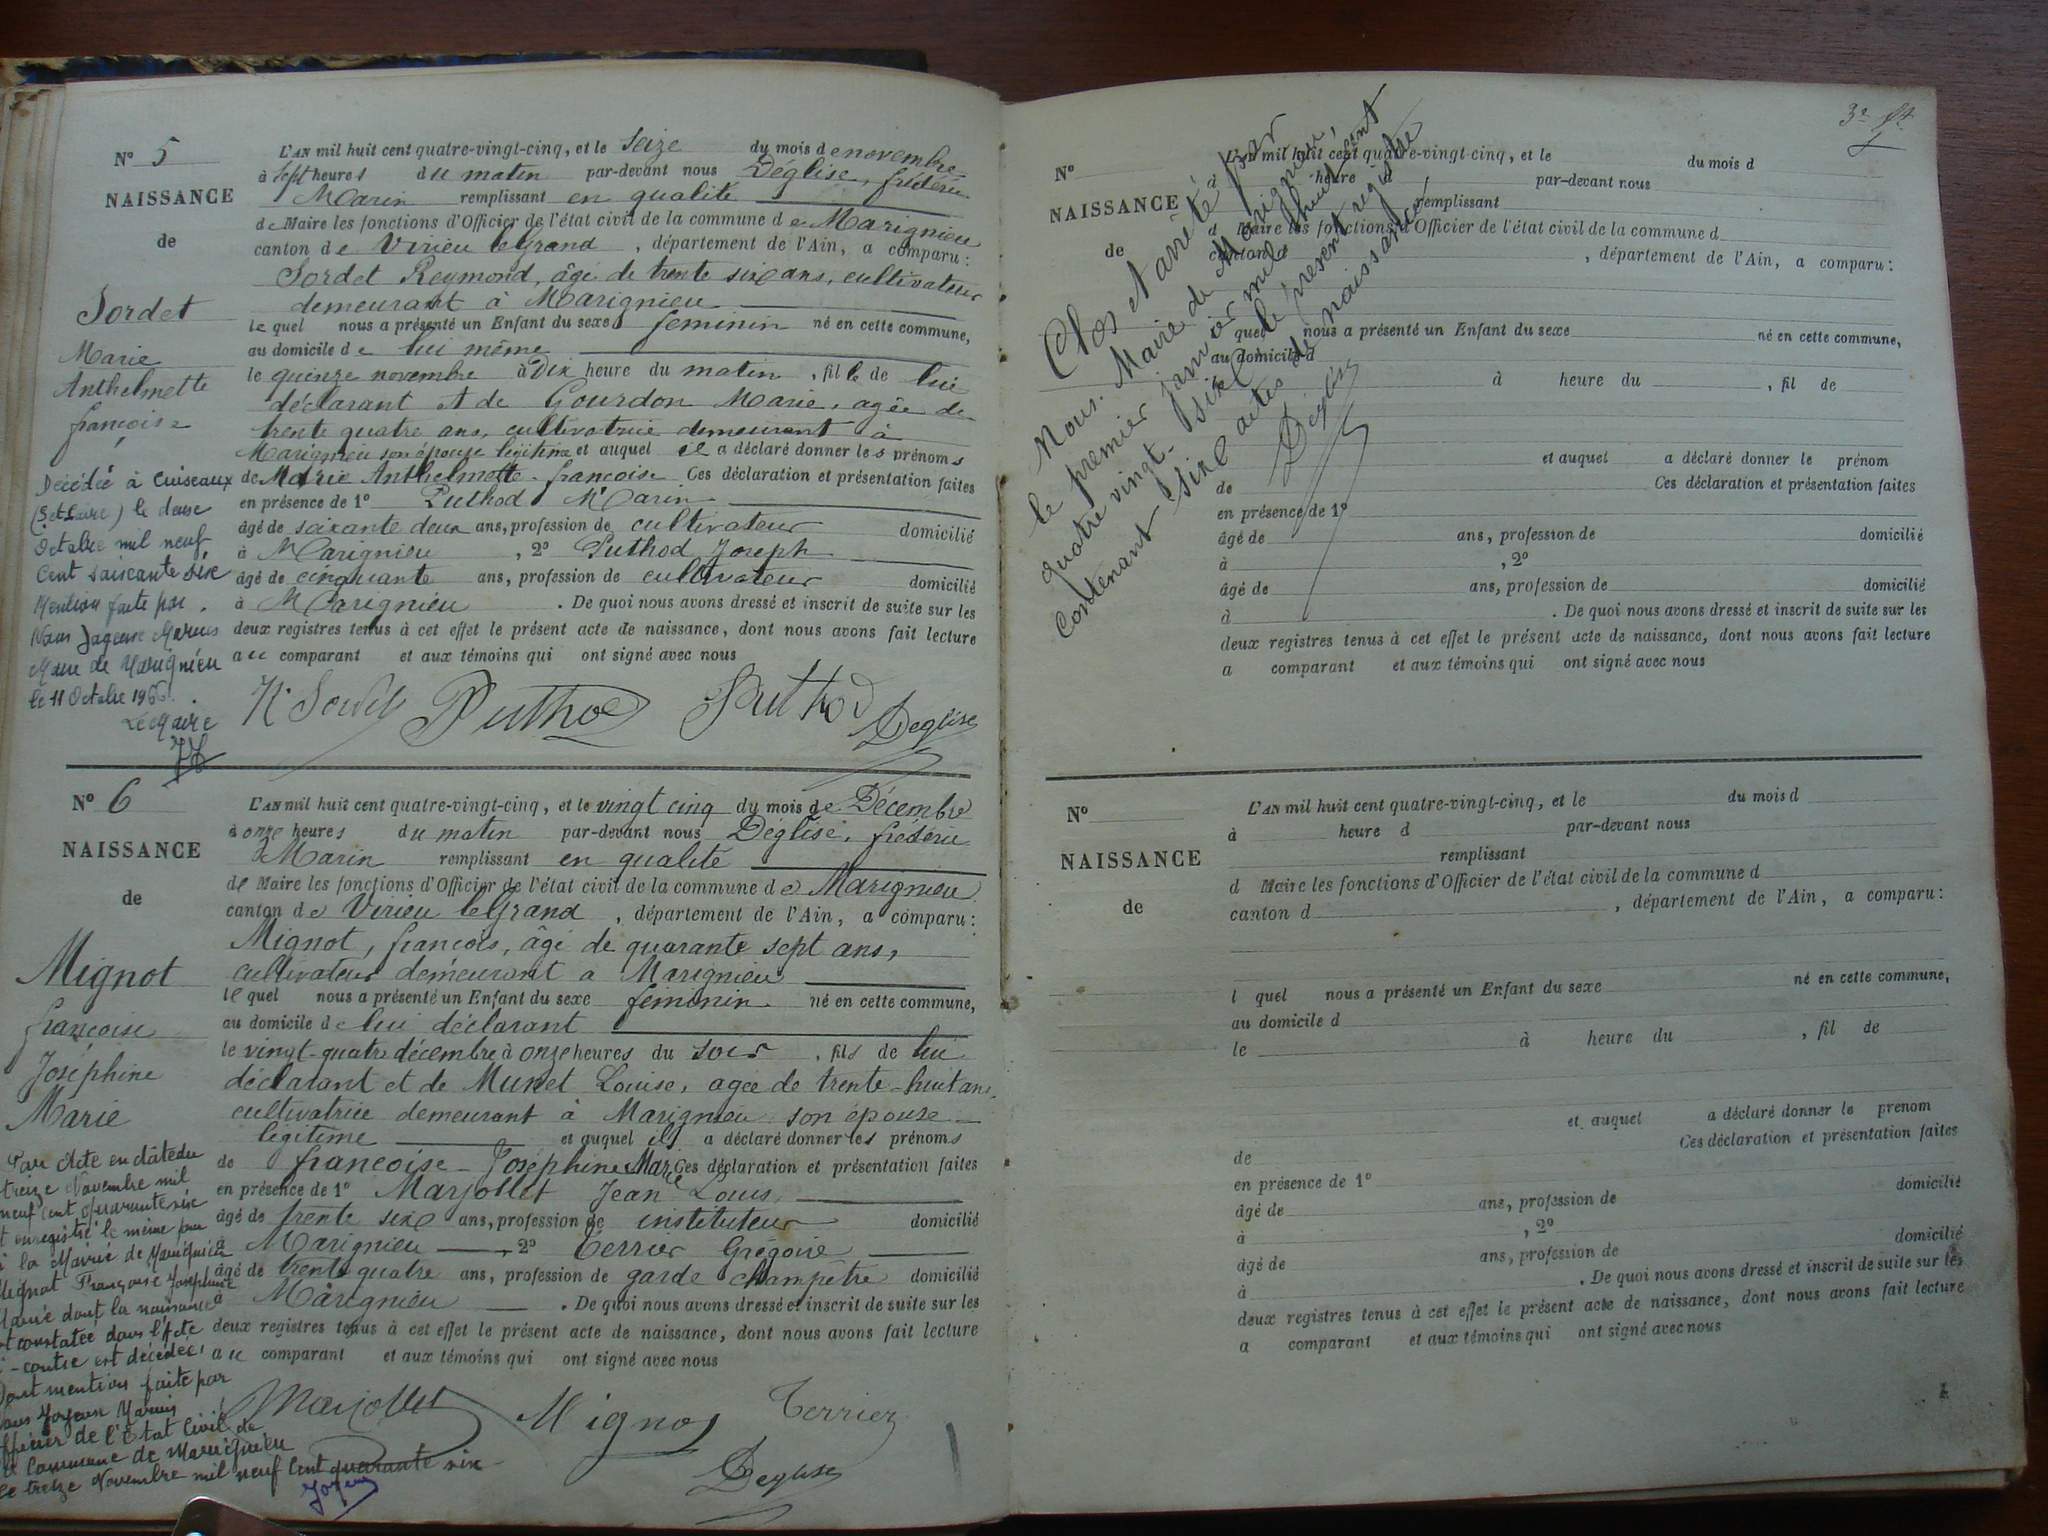 N° 5
NAISSANCE
de
Sordet
Marie
Anthelmette
françoise
Décédée à Cuiseaux
(S et Loire) le deux
Octobre mil neuf
Cent soixante six
Mention faite par
Nous Joyeux Marius
Maire de Marignieu
le 11 Octobre 1966.
Le Maire
L'AN mil huit cent quatre-vingt-cinq, et le seize du mois de novembre
à sept heures du matin par-devant nous Déglise, frédéric
Marin remplissant en qualité
de Maire les fonctions d'Officier de l'état civil de la commune de Marignieu
canton de Virieu le Grand, département de l'Ain, a comparu :
Sordet Reymond, âgé de trente six ans, cultivateur
demeurant à Marignieu
lequel nous a présenté un Enfant du sexe féminin né en cette commune,
au domicile de lui même
le quinze novembre à Dix heure du matin, fille de lui
déclarant et de Gourdon Marie, agée de
trente quatre ans, cultivatrice demeurant à
Marignieu son épouse légitime et auquel il a déclaré donner les prénoms
de Marie Anthelmette françoise Ces déclaration et présentation faites
en présence de 1° Puthod Marin
âgé de soixante deux ans, profession de cultivateur domicilié
à Marignieu, 2° Puthod Joseph
âgé de cinquante ans, profession de cultivateur domicilié
à Marignieu. De quoi nous avons dressé et inscrit de suite sur les
deux registres tenus à cet effet le présent acte de naissance, dont nous avons fait lecture
au comparant et aux témoins qui ont signé avec nous
R Sordet Puthod Puthod Deglise
N° 6
NAISSANCE
de
Mignot
françoise
Joséphine
Marie
Par Acte en date du
treize Novembre mil
neuf cent quarante six
et enregistré le même jour
à la Mairie de Marignieu
Mignot Françoise Joséphine
Marie dont la naissance
est constatée dans l'Acte
ci-contre est décédée,
Dont mention faite par
Nous Joyeux Marius
Officier de l'Etat Civil de
la Commune de Marignieu
Le treize Novembre mil neuf Cent quarante six
Joyeux
L'AN mil huit cent quatre-vingt-cinq, et le vingt cinq du mois de Décembre
à onze heures du matin par-devant nous Déglise, frédéric
Marin remplissant en qualité
de Maire les fonctions d'Officier de l'état civil de la commune de Marignieu
canton de Virieu le Grand, département de l'Ain, a comparu :
Mignot, françois, âgé de quarante sept ans,
cultivateur demeurant a Marignieu
le quel nous a présenté un Enfant du sexe féminin né en cette commune,
au domicile de lui déclarant
le vingt-quatre décembre à onze heures du soir, fils de lui
déclarant et de Munet Louise, agée de trente-huit ans,
cultivatrice demeurant à Marignieu son épouse
légitime et auquel ils a déclaré donner les prénoms
de françoise-Joséphine Marie Ces déclaration et présentation faites
en présence de 1° Marjollet Jean Louis,
âgé de trente six ans, profession de instituteur domicilié
à Marignieu, 2° Terrier Grégoire
âgé de trente quatre ans, profession de garde champêtre domicilié
à Marignieu. De quoi nous avons dressé et inscrit de suite sur les
deux registres tenus à cet effet le présent acte de naissance, dont nous avons fait lecture
au comparant et aux témoins qui ont signé avec nous
Marjollet Mignot Terrier
Deglise
3e ft.
N°
NAISSANCE
de
L'AN mil huit cent quatre-vingt-cinq, et le du mois d
à heure d par-devant nous
remplissant
d Maire les fonctions d'Officier de l'état civil de la commune d
canton d, département de l'Ain, a comparu :
quel nous a présenté un Enfant du sexe né en cette commune,
au domicile d
à heure du, fil de
et auquel a déclaré donner le prénom
de Ces déclaration et présentation faites
en présence de 1°
âgé de ans, profession de domicilié
à, 2°
âgé de ans, profession de domicilié
à. De quoi nous avons dressé et inscrit de suite sur les
deux registres tenus à cet effet le présent acte de naissance, dont nous avons fait lecture
a comparant et aux témoins qui ont signé avec nous
Clos et arrêté par
Nous. Maire de Marignieu,
le premier janvier mil huit cent
quatre vingt-six le présent registre
Contenant six actes de naissance.
Déglise
N°
NAISSANCE
de
L'AN mil huit cent quatre-vingt-cinq, et le du mois d
à heure d par-devant nous
remplissant
d Maire les fonctions d'Officier de l'état civil de la commune d
canton d, département de l'Ain, a comparu :
l quel nous a présenté un Enfant du sexe né en cette commune,
au domicile d
le à heure du, fil de
et auquel a déclaré donner le prenom
de Ces déclaration et présentation faites
en présence de 1°
âgé de ans, profession de domicilié
à, 2°
âgé de ans, profession de domicilié
à. De quoi nous avons dressé et inscrit de suite sur les
deux registres tenus à cet effet le présent acte de naissance, dont nous avons fait lecture
a comparant et aux témoins qui ont signé avec nous